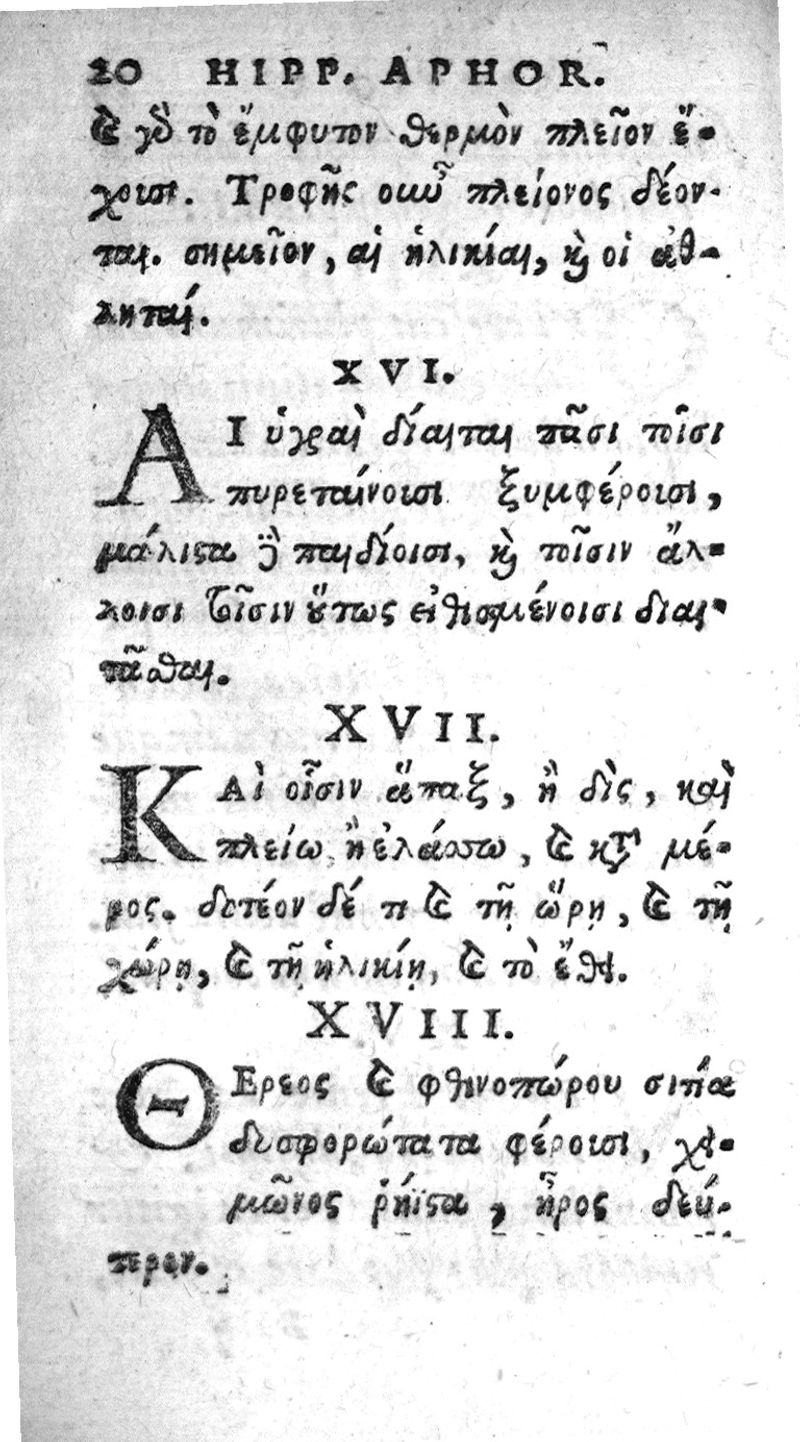 20 HIPP. APHOR.
καὶ γὸ τὸ ἔμφυτον θερμὸν πλεῖον ἔ-
χουσι. Τροφῆς οὖν πλείονος δέον-
ται. σημεῖον, αἱ ἡλικίαι, καὶ οἱ ἀθ-
ληταί.
XVI.
ΑΙ ὑγραὶ δίαιται πᾶσι τοῖσι
πυρεταίνουσι ξυμφέρουσι,
μάλιϛα δὲ παιδίοισι, καὶ τοῖσιν ἄλ-
λοισι τοῖσιν ὅτως εἰθισμένοισι διαι-
τᾶσθαι.
XVII.
ΚΑὶ οἷσιν ἅπαξ, ἢ δὶς, καὶ
πλείω, ἢ ἐλάσσω, καὶ κατὰ μέ-
ρος. δοτέον δέ τι καὶ τῇ ὥρῃ, καὶ τῇ
χώρῃ, καὶ τῇ ἡλικίῃ, καὶ τὸ ἔθει.
XVIII.
ΘΕρεος καὶ φθινοπώρου σιτία
δυσφορώτατα φέρουσι, χει-
μῶνος ῥήϊϛα, ἦρος δεύ-
τερον.